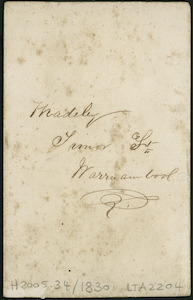 Madeley
Timor St
Warrnambool
H2005.34/1830 LTA2204